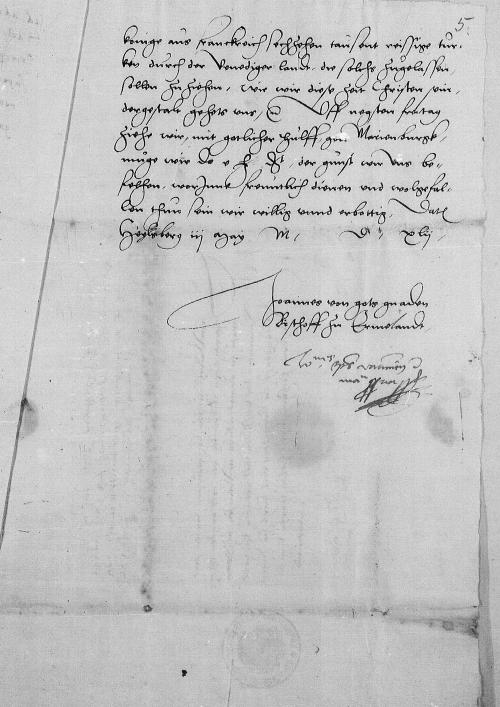 5.
konige aus franckreich sechzehen tausent reissige tur-
ken durch der Venediger landt die solchs zugelassen
sollen zuziehen, wie wir diese zeit Christen sein
dergestalt gehets Uff negsten freitag
ziehe wir, mit gotlicher hulff, gen Marienburgk
muge wir E h der gunst wir uns be-
felhen, worinne freuntlich dienen und wolgefal-
len thun sein wir willig unnd erbottig, Dat
Heylsberg iij May M. D xlij
Joannes von gots gnaden
Bischoff zu Ermelandt